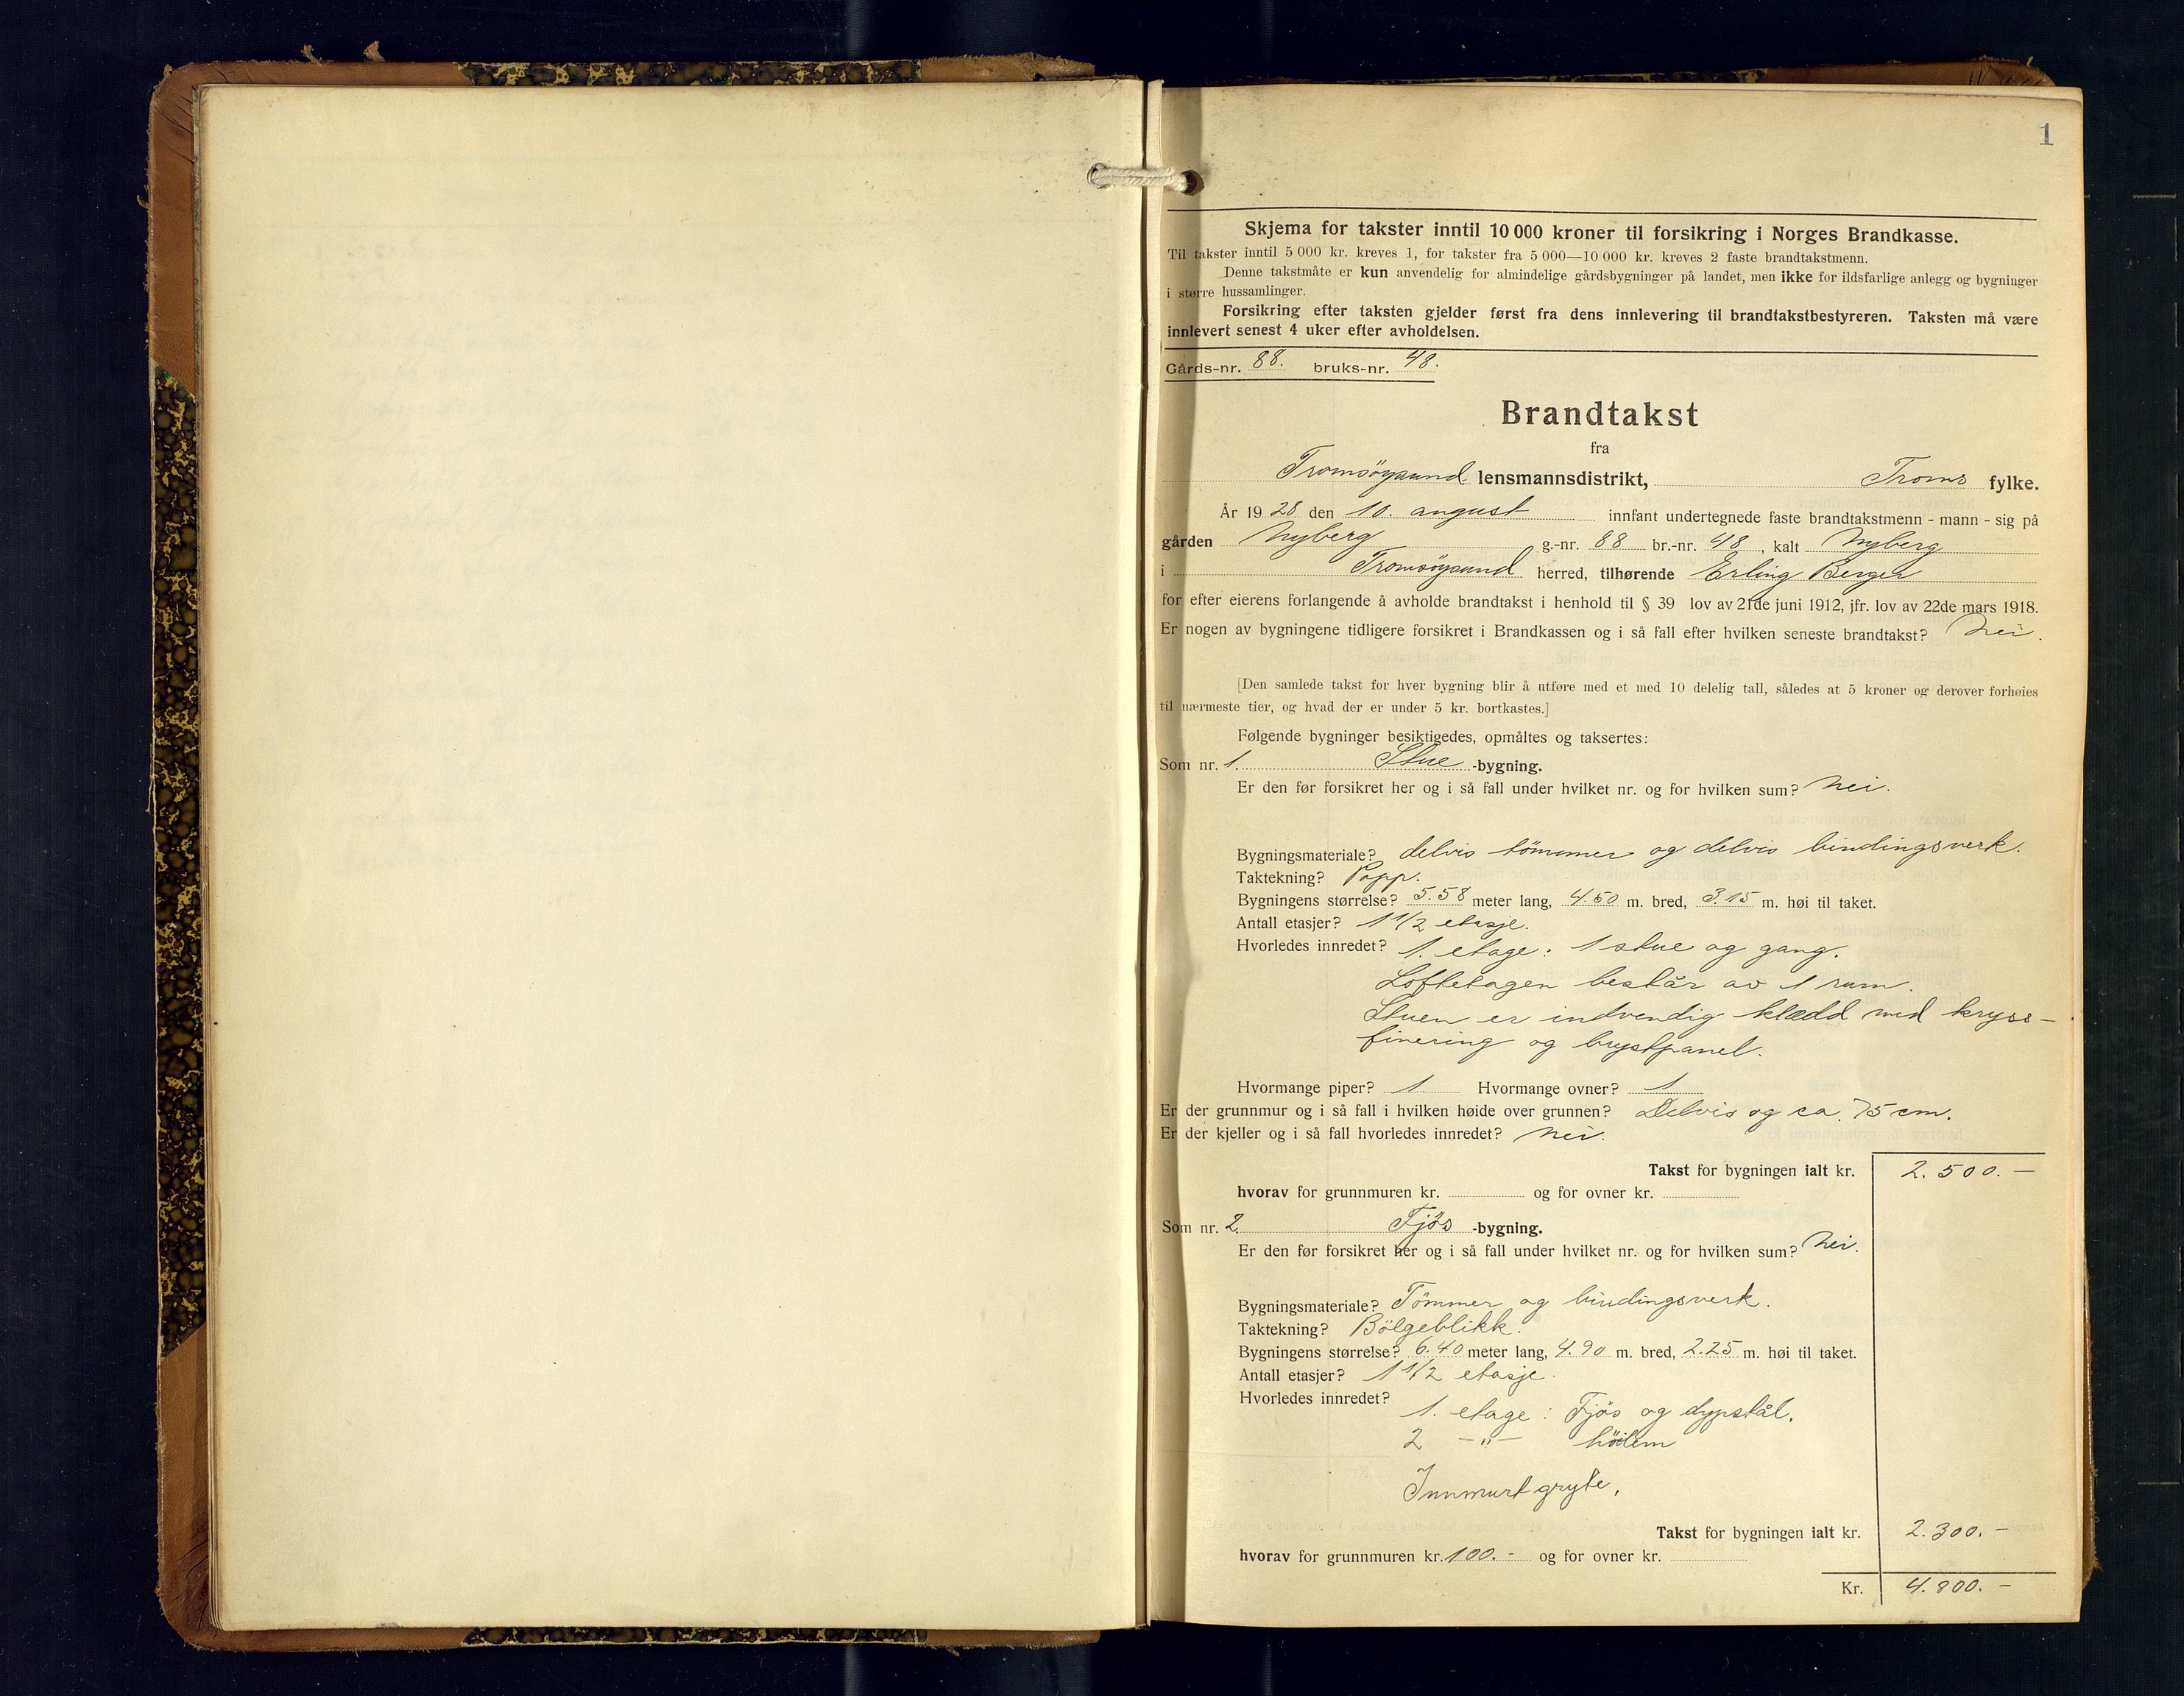 1
Skjema for takster inntil 10 000 kroner til forsikring i Norges Brandkasse.
Til takster inntil 5 000 kr. kreves 1, for takster fra 5 000—10 000 kr. kreves 2 faste brandtakstmenn.
Denne takstmåte er kun anvendelig for almindelige gårdsbygninger på landet, men ikke for ildsfarlige anlegg og bygninger
i større hussamlinger.
Forsikring efter taksten gjelder først fra dens innlevering til brandtakstbestyreren. Taksten må være
innlevert senest 4 uker efter avholdelsen.
Gårds-nr. 88. bruks-nr. 48.
Brandtakst
fra
Tromsöysund lensmannsdistrikt, Troms fylke.
År 1928 den 10. august innfant undertegnede faste brandtakstmenn - mann - sig på
gården Nyberg g.-nr. 88 br.-nr. 48, kalt Nyberg
i Tromsöysund herred, tilhørende Erling Berger
for efter eierens forlangende å avholde brandtakst i henhold til § 39 lov av 21de juni 1912, jfr. lov av 22de mars 1918.
Er nogen av bygningene tidligere forsikret i Brandkassen og i så fall efter hvilken seneste brandtakst? Nei.
[Den samlede takst for hver bygning blir å utføre med et med 10 delelig tall, således at 5 kroner og derover forhøies
til nærmeste tier, og hvad der er under 5 kr. bortkastes.]
Følgende bygninger besiktigedes, opmåltes og taksertes:
Som nr. 1. Stue -bygning.
Er den før forsikret her og i så fall under hvilket nr. og for hvilken sum? Nei.
Bygningsmateriale? delvis tömmer og delvis bindingsverk.
Taktekning? Papp.
Bygningens størrelse? 5.58 meter lang, 4.50 m. bred, 3.15 m. høi til taket.
Antall etasjer? 1 1/2 etasje.
Hvorledes innredet? 1. etage: 1 stue og gang.
Loftetagen består av 1 rum.
Stuen er indvendig klædd med kryss-
finering og brystpanel.
Hvormange piper? 1 Hvormange ovner? 1
Er der grunnmur og i så fall i hvilken høide over grunnen? Delvis og ca. 75 cm.
Er der kjeller og i så fall hvorledes innredet? Nei.
Takst for bygningen ialt kr. 2.500.-
hvorav for grunnmuren kr. og for ovner kr.
Som nr. 2. Fjøs -bygning.
Er den før forsikret her og i så fall under hvilket nr. og for hvilken sum? Nei.
Bygningsmateriale? Tömmer og bindingsverk.
Taktekning? Bölgeblikk.
Bygningens størrelse? 6.40 meter lang, 4.90 m. bred, 2.25 m. høi til taket.
Antall etasjer? 1 1/2 etasje.
Hvorledes innredet? 1. etage: Fjøs og dypstål.
2 -"- höilem
Innmurt gryte.
Takst for bygningen ialt kr. 2.300.-
hvorav for grunnmuren kr. 100.- og for ovner kr.
Kr. 4.800.-